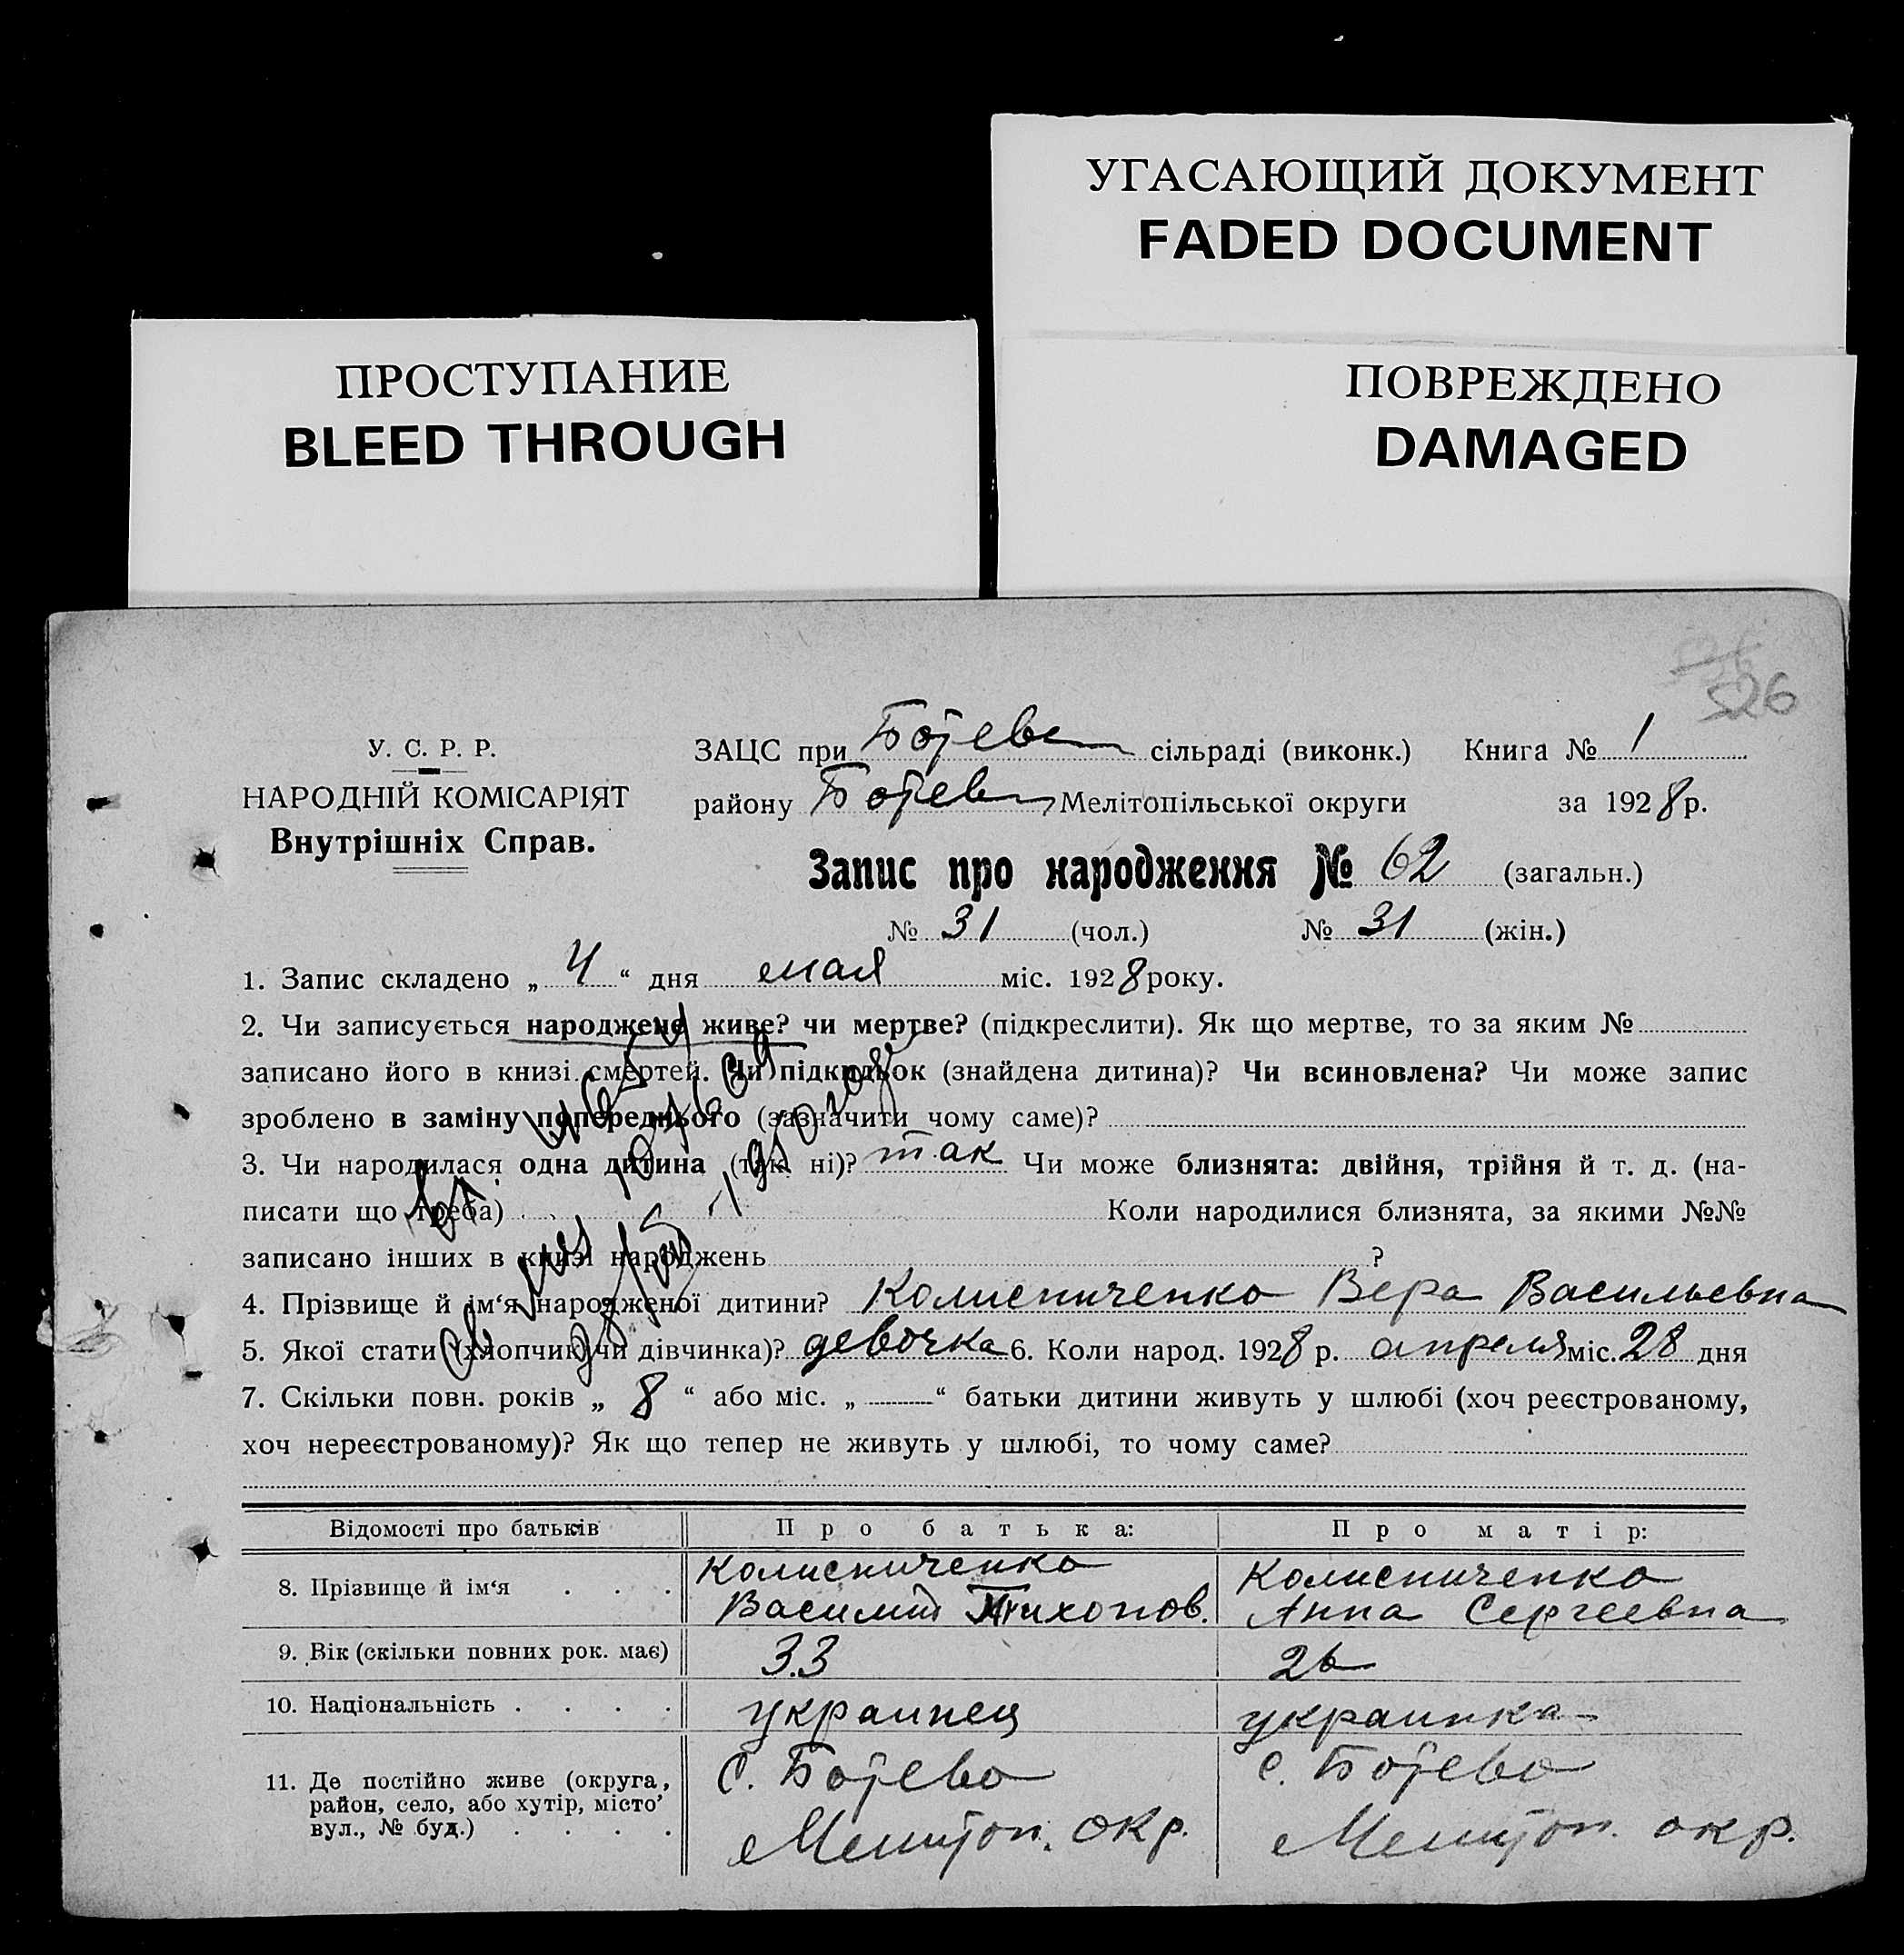 УГАСАЮЩИЙ ДОКУМЕНТ
FADED DOCUMENT
ПРОСТУПАНИЕ
BLEED THROUGH
ПОВРЕЖДЕНО
DAMAGED
526
У. С. Р. Р.
НАРОДНІЙ КОМІСАРІЯТ
Внутрішніх Справ.
ЗАЦС при Ботев сільраді (виконк.) Книга № 1
району Ботев Мелітопільської округи за 1928 р.
Запис про народження № 62 (загальн.)
№ 31 (чол.) № 31 (жін.)
1. Запис складено „ 4 “ дня мая міс. 1928 року.
2. Чи записується народжене живе? чи мертве? (підкреслити). Як що мертве, то за яким №
записано його в книзі смертей. Чи підкидьок (знайдена дитина)? Чи всиновлена? Чи може запис
зроблено в заміну попереднього (зазначити чому саме)?
3. Чи народилася одна дитина (так, ні)? так Чи може близнята: двійня, трійня й т. д. (на-
писати що треба) Коли народилися близнята, за якими №№
записано інших в книзі народжень ?
4. Прізвище й ім‘я народженої дитини? Колисниченко Вера Васильевна
5. Якої стати (хлопчик чи дівчинка)? девочка 6. Коли народ. 1928 р. апреля міс. 28 дня
7. Скільки повн. років „ 8 “ або міс. „ “ батьки дитини живуть у шлюбі (хоч реєстрованому,
хоч нереєстрованому)? Як що тепер не живуть у шлюбі, то чому саме?
Відомості про батьків Про батька: Про матір:
8. Прізвище й ім‘я . . . Колисниченко Василий Тихонов. Колисниченко Анна Сергеевна
9. Вік (скільки повних рок. має) 33 26
10. Національність . . . . украинец украинка
11. Де постійно живе (округа, с. Ботево с. Ботево
район, село, або хутір, місто’ Мелитоп. окр. Мелитоп. окр.
вул., № буд.) . . . .